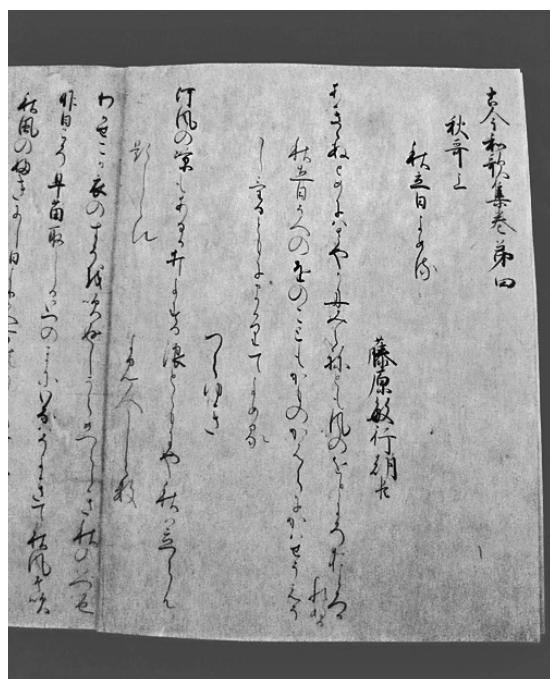 古今和歌集巻第四
秋哥上
秋立日よめる
藤原敏行朝臣
あききぬとめにはさやかに見えねとも風のをとにそおとろかれぬる
秋立日うへのをのこともかものかはらにかはせうえう
しけるともにまかりてよめる
つらゆき
河風の涼しくもあるかうちよする浪とともにや秋は立らん
題しらす　よみ人しらす
わかせこか衣のすそを吹返しうらめつらしき秋のはつ
昨日こそ早苗取しかいつのまにいなはそよきて秋風そ吹
秋風の吹きにし日より